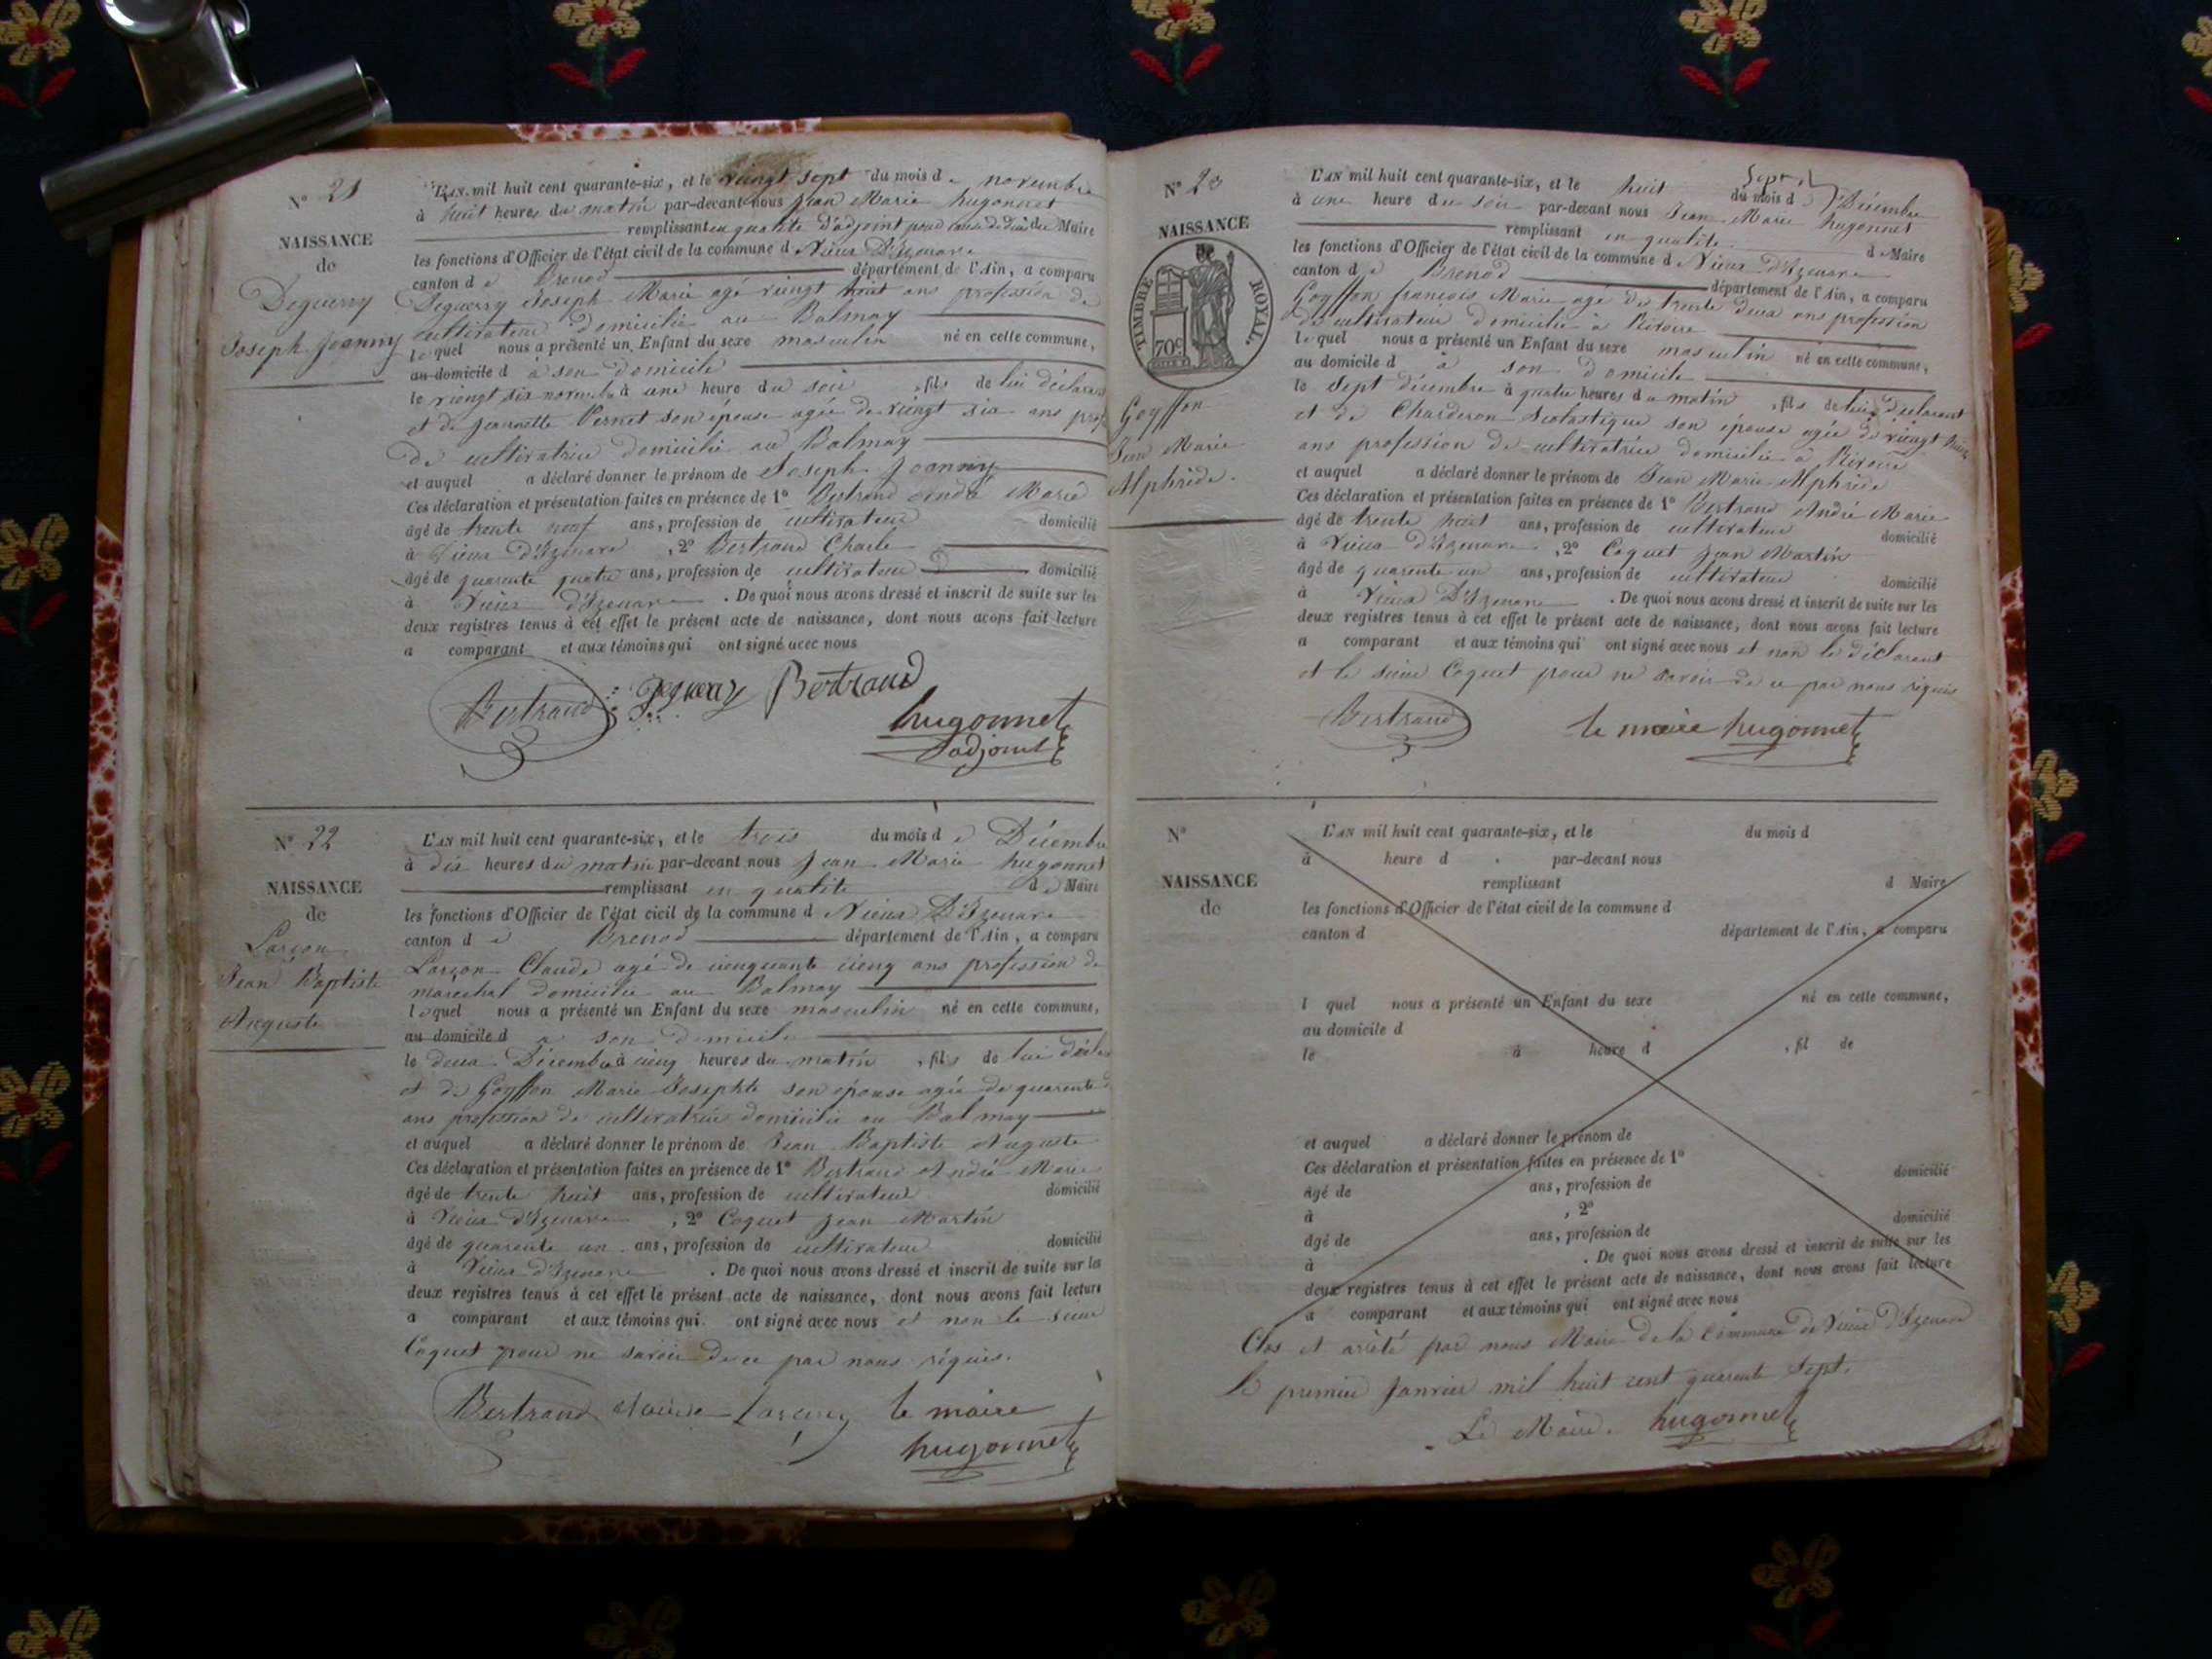 N° 21
NAISSANCE
de
Deguerry
Joseph Joanny
L'AN mil huit cent quarante-six, et le vingt sept du mois de novembre
à huit heures du matin par-devant nous Jean Marie hugonnet
remplissant en qualité d'adjoint pour cause de Maire
les fonctions d'Officier de l'état civil de la commune d Vieux D'Izenave
canton d e Brenod département de l'Ain, a comparu
Deguerry Joseph Marie agé vingt huit ans profession de
cultivateur domicilié au Balmay
lequel nous a présenté un Enfant du sexe masculin né en cette commune,
au domicile d à son domicile
le vingt six novembre à une heure du soir , fils de lui déclarant
et de Jeannette Vernet son épouse agée de vingt six ans prof
de cultivatrice domicilié au Balmay
et auquel a déclaré donner le prénom de Joseph Joanny
Ces déclaration et présentation faites en présence de 1° Bertrand André Marie
âgé de trente neuf ans, profession de cultivateur domicilié
à Vieux d'Izenave , 2° Bertrand Charle
âgé de quarente quatre ans, profession de cultivateur domicilié
à Vieux d'Izenave . De quoi nous avons dressé et inscrit de suite sur les
deux registres tenus à cet effet le présent acte de naissance, dont nous avons fait lecture
a comparant et aux témoins qui ont signé avec nous
Bertrand Deguerry Bertrand
hugonnet
adjoint
N° 22
NAISSANCE
de
Larçon
Jean Baptiste
Auguste
L'AN mil huit cent quarante-six, et le trois du mois d e Décembre
à dix heures du matin par-devant nous Jean Marie hugonnet
remplissant en qualité d e Maire
les fonctions d'Officier de l'état civil de la commune d Vieux D'Izenave
canton d e Brenod département de l'Ain, a comparu
Larçon Claude agé de cinquante cinq ans profession de
marechal domicilié au Balmay
lequel nous a présenté un Enfant du sexe masculin né en cette commune,
au domicile d à son domicile
le deux Décembre à cinq heures du matin , fils de lui décla
et de Goyffon Marie Josephte son épouse agée de quarente
ans profession de cultivatrice domicilié au Balmay
et auquel a déclaré donner le prénom de Jean Baptiste Auguste
Ces déclaration et présentation faites en présence de 1° Bertrand André Marie
âgé de trente huit ans, profession de cultivateur domicilié
à Vieux d'Izenave , 2° Coquet Jean Martin
âgé de quarente un ans, profession de cultivateur domicilié
à Vieux d'Izenave . De quoi nous avons dressé et inscrit de suite sur les
deux registres tenus à cet effet le présent acte de naissance, dont nous avons fait lecture
a comparant et aux témoins qui ont signé avec nous et non le sieur
Coquet pour ne savoir de ce par nous réquis.
Bertrand le maire
hugonnet
N° 23
NAISSANCE
TIMBRE ROYAL.
70c
Goyffon
Jean Marie
Alphrède.
Sept.
L'AN mil huit cent quarante-six, et le huit du mois d Décembre
à une heure du soir par-devant nous Jean Marie hugonnet
remplissant en qualité d e Maire
les fonctions d'Officier de l'état civil de la commune d Vieux d'Izenave
canton d e Brenod département de l'Ain, a comparu
Goyffon françois Marie agé de trente deux ans profession
de cultivateur domicilié à Rivoire
lequel nous a présenté un Enfant du sexe masculin né en cette commune,
au domicile d à son domicile
le sept décembre à quatre heures du matin , fils de lui déclarant
et de Charderon Scolastique son épouse agée de vingt
ans profession de cultivatrice domicilié à Rivoire
et auquel a déclaré donner le prénom de Jean Marie Alphrède
Ces déclaration et présentation faites en présence de 1° Bertrand André Marie
âgé de trente huit ans, profession de cultivateur domicilié
à Vieux d'Izenave , 2° Coquet Jean Martin
âgé de quarente un ans, profession de cultivateur domicilié
à Vieux D'Izenave . De quoi nous avons dressé et inscrit de suite sur les
deux registres tenus à cet effet le présent acte de naissance, dont nous avons fait lecture
a comparant et aux témoins qui ont signé avec nous et non le déclarant
et le sieur Coquet pour ne savoir de ce par nous réquis
Bertrand le maire hugonnet
N°
NAISSANCE
de
L'AN mil huit cent quarante-six, et le du mois d
à heure d par-devant nous
remplissant d Maire
les fonctions d'Officier de l'état civil de la commune d
canton d département de l'Ain, a comparu
l quel nous a présenté un Enfant du sexe né en cette commune,
au domicile d
le à heure d , fil de
et auquel a déclaré donner le prénom de
Ces déclaration et présentation faites en présence de 1°
âgé de ans, profession de domicilié
à , 2°
âgé de ans, profession de domicilié
à . De quoi nous avons dressé et inscrit de suite sur les
deux registres tenus à cet effet le présent acte de naissance, dont nous avons fait lecture
a comparant et aux témoins qui ont signé avec nous
Clos et arrêté par nous Maire de la Commune de Vieux d'Izenave
le premier Janvier mil huit cent quarente Sept.
Le Maire. hugonnet